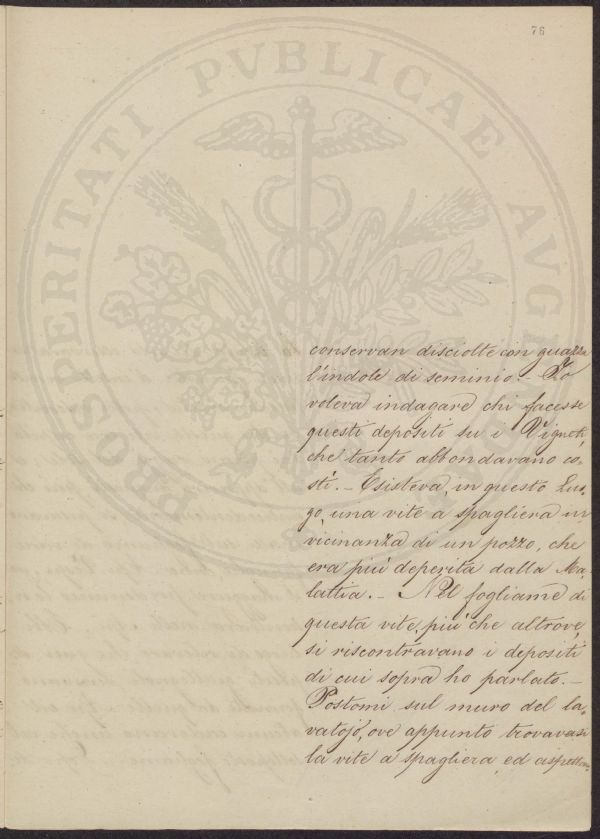 76
PROSPERITATI PVBLICAE AVG
conservan disciolte con guazza
l'indole di seminio. - Io
voleva indagare chi facesse
questi depositi su i Vigneti,
che tanto abbondavano co-
stì. - Esisteva, in questo Luo-
go, una vite a spagliera in
vicinanza di un pozzo, che
era più deperita dalla Ma-
lattia. - Nel fogliame di
questa vite, più che altrove,
si riscontravano i depositi
di cui sopra ho parlato. -
Postomi sul muro del la-
vatojo, ove appunto trovavasi
la vite a spagliera, ed aspettan-